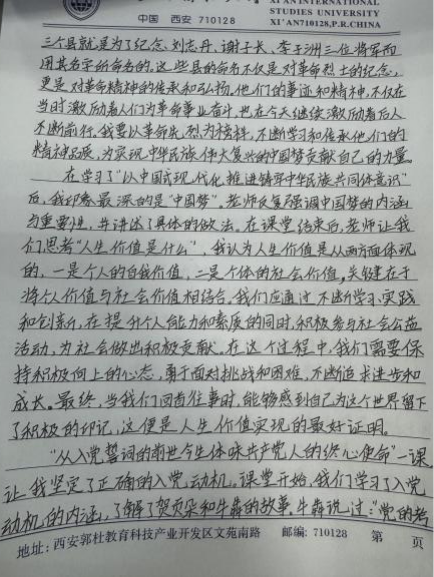 XI'AN INTERNATIONAL
STUDIES UNIVERSITY
中国 西安 710128 XI'AN710128,P.R.CHINA
三个县就是为了纪念刘志丹、谢子长、李子洲三位将军而
用其名字所命名的。这些县的命名不仅是对革命烈士的纪念,
更是对革命精神的传承和弘扬,他们的事迹和精神,不仅在
当时激励着人们为革命事业奋斗,也在今天继续激励着后人
不断前行。我要以革命先烈为榜样,不断学习和传承他们的
精神品质,为实现中华民族伟大复兴的中国梦贡献自己的力量。
在学习了“以中国式现代化推进铸牢中华民族共同体意识”
后,我印象最深的是“中国梦”,老师反复强调中国梦的内涵
与重要性,并讲述了具体的做法。在课堂结束后,老师让我
们思考“人生价值是什么”,我认为人生价值是从两方面体现
的,一是个人的自我价值,二是个体的社会价值,关键在于
将个人价值与社会价值相结合。我们应通过不断学习、实践
和创新,在提升个人能力和素质的同时,积极参与社会公益
活动,为社会做出积极贡献。在这个过程中,我们需要保
持积极向上的心态,勇于面对挑战和困难,不断追求进步和
成长。最终,当我们回首往事时,能够感到自己为这个世界留下
了积极的印记,这便是人生价值实现的最好证明。
“从入党誓词的前世今生体味共产党人的终心使命”一课
让我坚定了正确的入党动机。课堂开始,我们学习了入党
动机的内涵,了解了贺页朵和牛犇的故事。牛犇说过:“党的考
地址: 西安郭杜教育科技产业开发区文苑南路 邮编: 710128 第 页